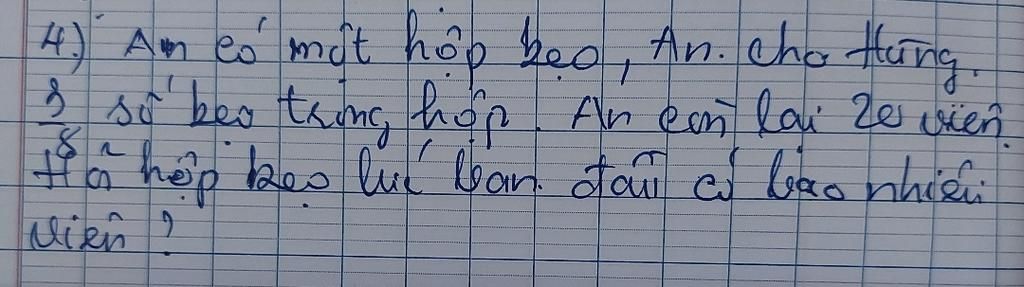 4.) An có một hộp kẹo, An. cho Hùng.
3/8 số kẹo trong hộp. An còn lại 20 viên.
Hỏi hộp kẹo lúc ban đầu có bao nhiêu
viên?